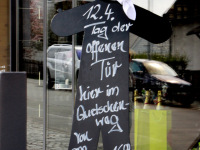 12.4.
Tag der
offenen
Tür
hier im
Quetschen-
weg
von